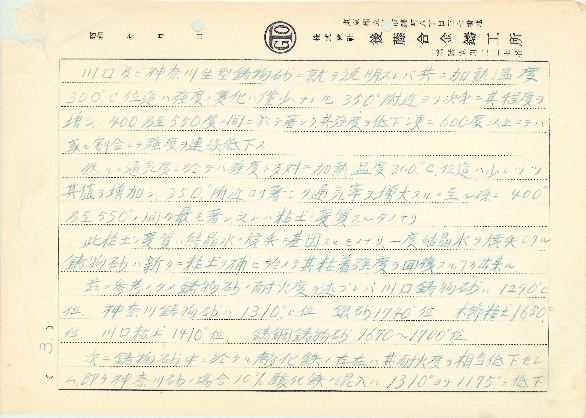 昭和 年 月 日
株式会社 後藤合金鋳工所
川口及ビ神奈川生型鋳物砂ニ就テ説明スレバ共ニ加熱温度
300°C位迄ハ強度ノ変化ハ僅少ナルモ 350°附近ヨリ次第ニ其程度ヲ
増シ、400乃至550度ノ間ニ於テ著シク其強度ヲ低下シ更ニ600度以上ニテハ
或ル割合ニテ強度ヲ連続低下ス
然ルニ通気度ニ於テハ強度ト反対ニ加熱温度300°C位迄ハ少シヅツ
其値ヲ増加シ、350°附近ヨリ著シク通気率ヲ増大スルニ至ル 殊ニ 400°
乃至550°ノ間ガ最モ著シ 之レハ粘土ノ変質スルタメナリ
此粘土ノ変質ハ結晶水ノ焼失ニ基因スルモノナリ、一度結晶水ヲ焼失シタル
鋳物砂ハ新タニ粘土ヲ補ヒ始メテ其粘着強度ヲ回復スル事ヲ出来ル
茲ニ参考ノタメ鋳物砂ノ耐火度ヲ述ブレバ 川口鋳物砂ハ 1290°C
位、神奈川鋳物砂ハ 1310°C位 銀砂1790位 木節粘土1650°
位 川口粘土 1410°位、鋳鋼鋳物砂 1670〜1700°位
次ニ鋳物砂中ニ於ケル酸化鉄ノ存在ハ其耐火度ヲ相当低下セシ
ム、即チ神奈川砂ノ場合10%酸化鉄ノ混入ハ 1310°ヨリ1175°ニ低下
( 3. )